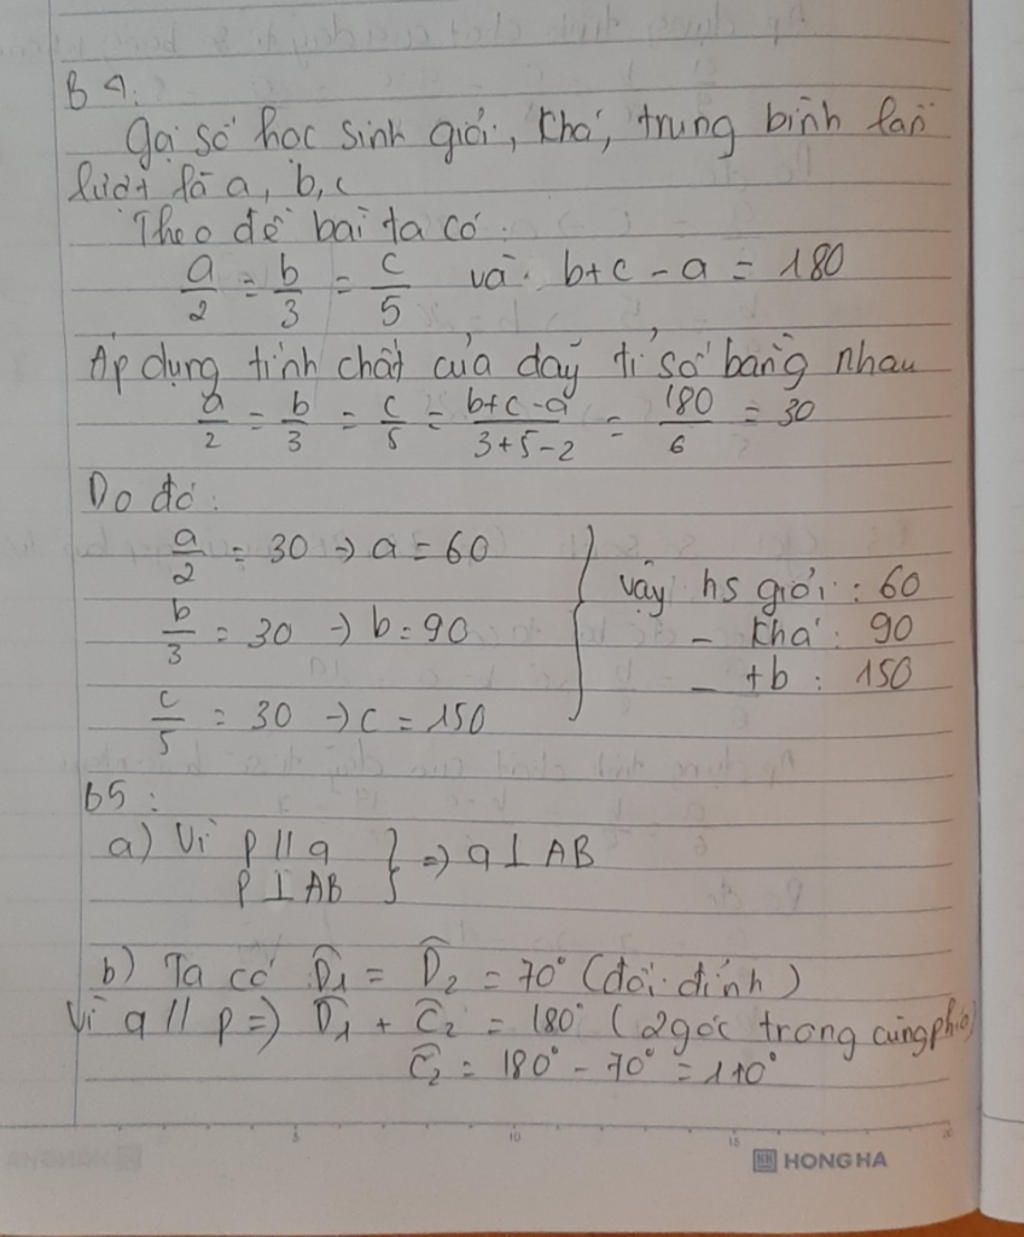 B4:
Gọi số học sinh giỏi, khá, trung bình lần
lượt là a, b, c
Theo đề bài ta có:
a/2 = b/3 = c/5 và b+c-a = 180
Áp dụng tính chất của dãy tỉ số bằng nhau
a/2 = b/3 = c/5 = b+c-a/3+5-2 = 180/6 = 30
Do đó:
a/2 = 30 → a = 60
b/3 = 30 → b = 90
c/5 = 30 → c = 150
} vậy hs giỏi: 60
- khá: 90
- tb: 150
b5:
a) Vì p // q
p ⊥ AB } ⇒ q ⊥ AB
b) Ta có D̂1 = D̂2 = 70° (đối đỉnh)
Vì q // p ⇒ D̂1 + Ĉ2 = 180° (2 góc trong cùng phía)
Ĉ2 = 180° - 70° = 110°
5 10 15 20
HONG HA